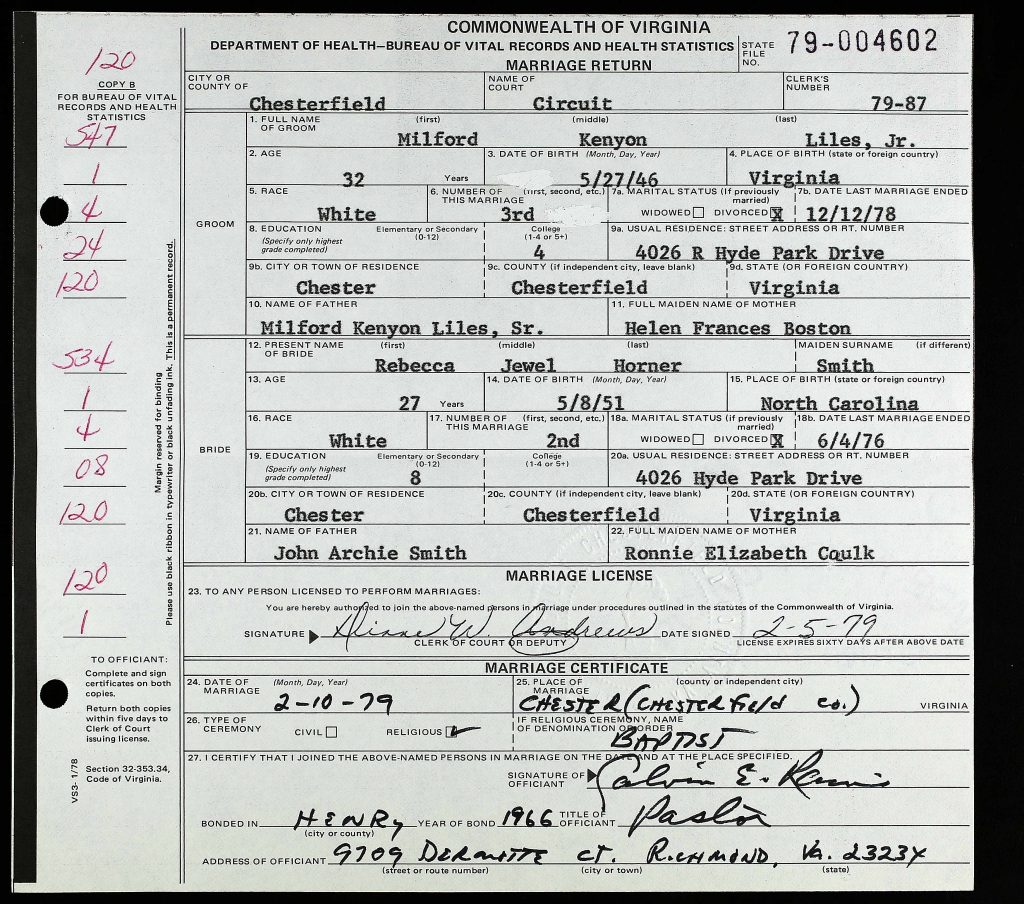 COMMONWEALTH OF VIRGINIA
DEPARTMENT OF HEALTH—BUREAU OF VITAL RECORDS AND HEALTH STATISTICS
MARRIAGE RETURN
STATE FILE NO. 79-004602
120
COPY B
FOR BUREAU OF VITAL
RECORDS AND HEALTH
STATISTICS
547
1
4
24
120
534
1
4
08
120
120
1
Margin reserved for binding
Please use black ribbon in typewriter or black unfading ink. This is a permanent record.
TO OFFICIANT:
Complete and sign
certificates on both
copies.
Return both copies
within five days to
Clerk of Court
issuing license.
Section 32-353.34,
Code of Virginia.
VS3- 1/78
CITY OR COUNTY OF Chesterfield NAME OF COURT Circuit CLERK'S NUMBER 79-87
GROOM
1. FULL NAME OF GROOM (first) (middle) (last)
Milford Kenyon Liles, Jr.
2. AGE 3. DATE OF BIRTH (Month, Day, Year) 4. PLACE OF BIRTH (state or foreign country)
32 Years 5/27/46 Virginia
5. RACE 6. NUMBER OF THIS MARRIAGE (first, second, etc.) 7a. MARITAL STATUS (If previously married) 7b. DATE LAST MARRIAGE ENDED
White 3rd WIDOWED DIVORCED X 12/12/78
8. EDUCATION (Specify only highest grade completed) Elementary or Secondary (0-12) College (1-4 or 5+) 9a. USUAL RESIDENCE: STREET ADDRESS OR RT. NUMBER
4 4026 R Hyde Park Drive
9b. CITY OR TOWN OF RESIDENCE 9c. COUNTY (if independent city, leave blank) 9d. STATE (OR FOREIGN COUNTRY)
Chester Chesterfield Virginia
10. NAME OF FATHER 11. FULL MAIDEN NAME OF MOTHER
Milford Kenyon Liles, Sr. Helen Frances Boston
BRIDE
12. PRESENT NAME OF BRIDE (first) (middle) (last) MAIDEN SURNAME (if different)
Rebecca Jewel Horner Smith
13. AGE 14. DATE OF BIRTH (Month, Day, Year) 15. PLACE OF BIRTH (state or foreign country)
27 Years 5/8/51 North Carolina
16. RACE 17. NUMBER OF THIS MARRIAGE (first, second, etc.) 18a. MARITAL STATUS (if previously married) 18b. DATE LAST MARRIAGE ENDED
White 2nd WIDOWED DIVORCED X 6/4/76
19. EDUCATION (Specify only highest grade completed) Elementary or Secondary (0-12) College (1-4 or 5+) 20a. USUAL RESIDENCE: STREET ADDRESS OR RT. NUMBER
8 4026 Hyde Park Drive
20b. CITY OR TOWN OF RESIDENCE 20c. COUNTY (if independent city, leave blank) 20d. STATE (OR FOREIGN COUNTRY)
Chester Chesterfield Virginia
21. NAME OF FATHER 22. FULL MAIDEN NAME OF MOTHER
John Archie Smith Ronnie Elizabeth Coulk
MARRIAGE LICENSE
23. TO ANY PERSON LICENSED TO PERFORM MARRIAGES:
You are hereby authorized to join the above-named persons in marriage under procedures outlined in the statutes of the Commonwealth of Virginia.
SIGNATURE Diane W. Andrews DATE SIGNED 2-5-79
CLERK OF COURT OR DEPUTY LICENSE EXPIRES SIXTY DAYS AFTER ABOVE DATE
MARRIAGE CERTIFICATE
24. DATE OF MARRIAGE (Month, Day, Year) 25. PLACE OF MARRIAGE (county or independent city)
2-10-79 CHESTER (CHESTERField co.) VIRGINIA
26. TYPE OF CEREMONY CIVIL RELIGIOUS IF RELIGIOUS CEREMONY, NAME OF DENOMINATION OR ORDER
BAPTIST
27. I CERTIFY THAT I JOINED THE ABOVE-NAMED PERSONS IN MARRIAGE ON THE DATE AND AT THE PLACE SPECIFIED.
SIGNATURE OF OFFICIANT Calvin E.
BONDED IN HENRY YEAR OF BOND 1966 TITLE OF OFFICIANT Pastor
(city or county)
ADDRESS OF OFFICIANT 9709 CT. RICHMOND, Va. 23234
(street or route number) (city or town) (state)